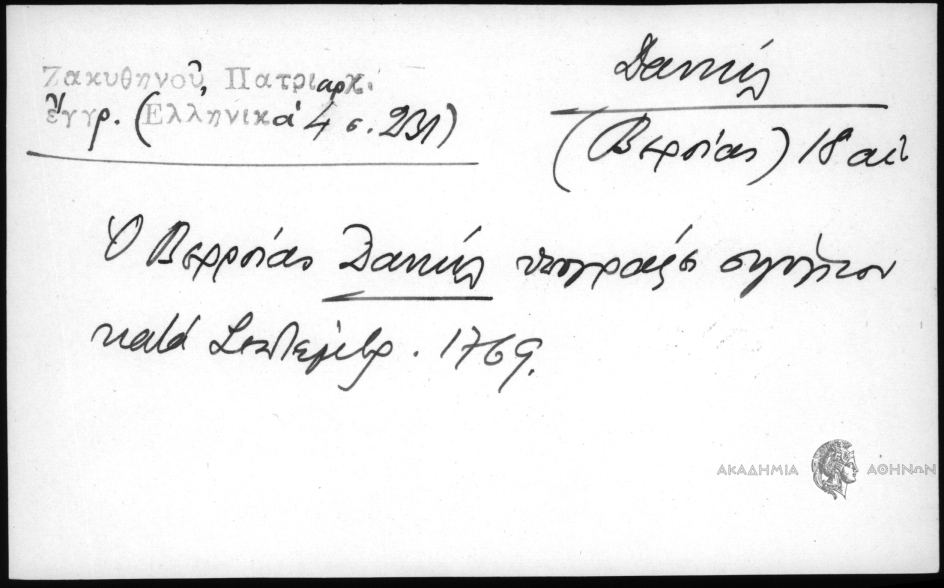 Ζακυθηνοῦ, Πατριαρχ.
ἔγγρ. (Ἑλληνικά 4 σ. 231)
Δανιήλ
(Βερροίας) 18 αἰ
Ὁ Βερροίας Δανιήλ ὑπογράφει σιγίλλιον
κατά Σεπτέμβρ. 1769.
ΑΚΑΔΗΜΙΑ ΑΘΗΝΩΝ